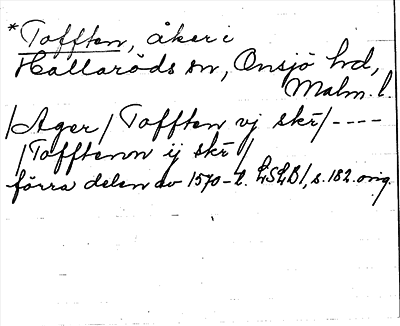 *Tofften, åker i
Hallaröds sn, Onsjö hd,
Malm. l.
/Ager/ Tofften vj skr/ ----
/Tofftenn ij skr/
förra delen av 1570-t. LSLB1, s. 182. orig.